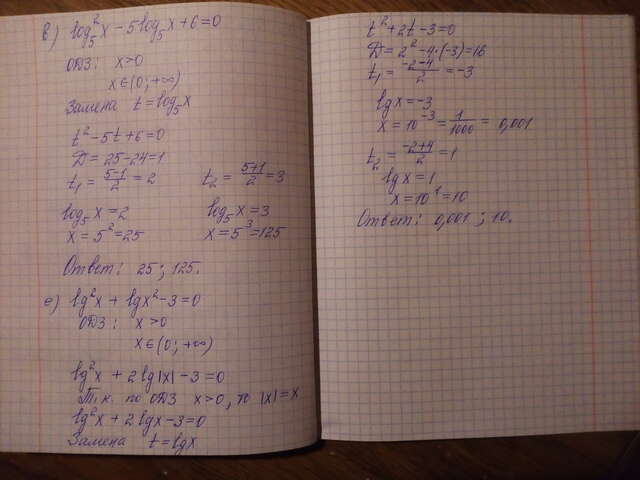 в) log₅²x – 5log₅x + 6 = 0
ОДЗ: x > 0
x ∈ (0; +∞)
Замена t = log₅x
t² – 5t + 6 = 0
D = 25 – 24 = 1
t₁ = (5–1)/2 = 2 t₂ = (5+1)/2 = 3
log₅x = 2 log₅x = 3
x = 5² = 25 x = 5³ = 125
Ответ: 25; 125.
е) lg²x + lgx² – 3 = 0
ОДЗ: x > 0
x ∈ (0; +∞)
lg²x + 2lg|x| – 3 = 0
Т.к. по ОДЗ x > 0, то |x| = x
lg²x + 2lgx – 3 = 0
Замена t = lgx
t² + 2t – 3 = 0
D = 2² – 4·(–3) = 16
t₁ = (–2–4)/2 = –3
lgx = –3
x = 10⁻³ = 1/1000 = 0,001
t₂ = (–2+4)/2 = 1
lgx = 1
x = 10¹ = 10
Ответ: 0,001; 10.